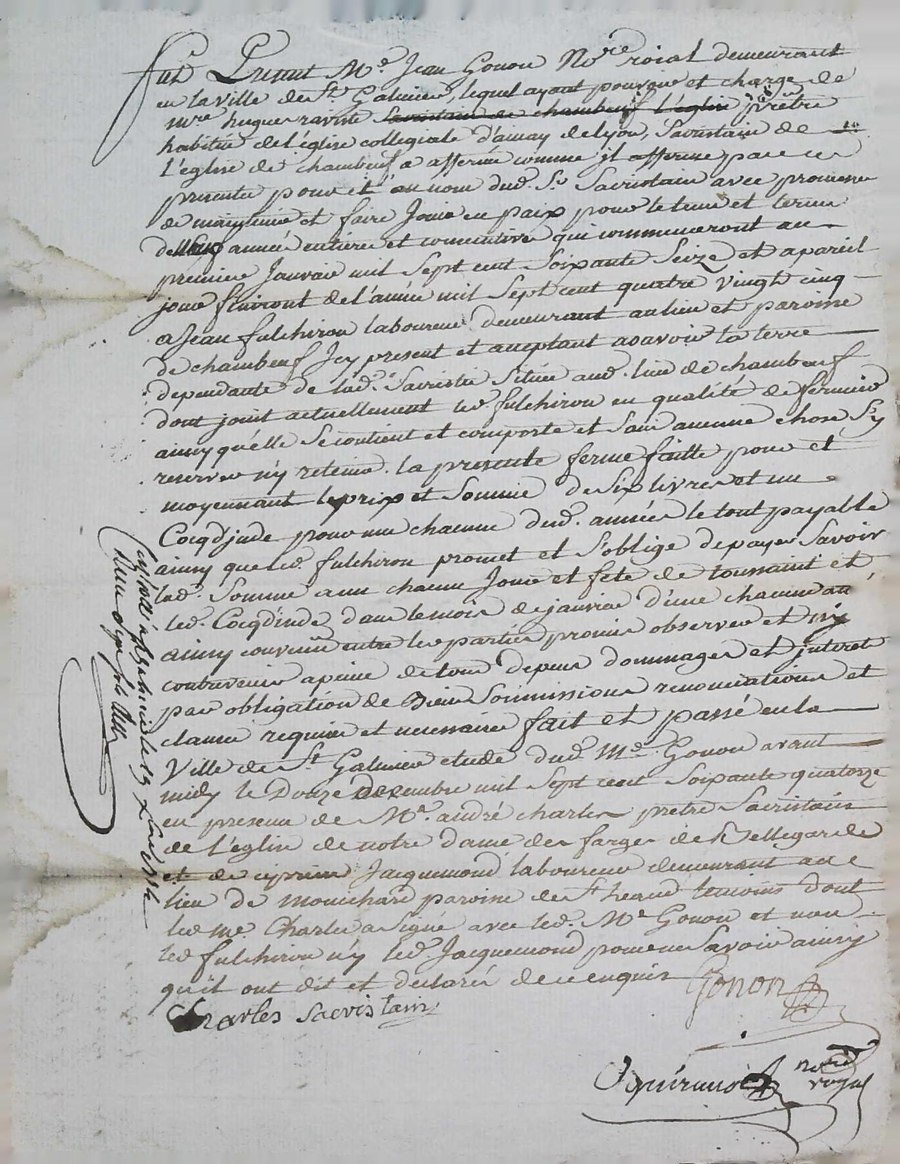 fut Present Me. Jean Gonon Nore roial demeurant
en la ville de St. Galmier, lequel ayant pouvoir et charge de
mre hugues raviste sacristain de chambeuf l'eglise prêtre
habitué de l'église collegiale d'ainay de lyon, Sacristain de
l'eglise de chambeuf a affermé comme jl afferme par ces
presentes pour et au nom dud. Sr. Sacristain avec promesse
de maintenir et faire Jouir en paix pour le tems et terme
de année entière et consecutive qui commenceront au
premier Janvier mil Sept cent Soixante Seize et a pareil
jour finiront de l'année mil Sept cent quatre vingt cinq
a Jean fulchiron laboureur demeurant au lieu et paroisse
de chambeuf Jcy present et acceptant a savoir la terre
dependante de lad. Sacristie Située aud. lieu de chambeuf
dont jouit actuellement led. fulchiron en qualité de fermier
ainsy quelle Se contient et comporte et Sans aucune chose S'y
reserver n'y retenir. la presente ferme faitte pour et
moyennant le prix et Somme de Six livres et un
Coq d'jnde pour une chacune desd. années le tout payable
ainsy que led. fulchiron promet et S'oblige de payer Savoir
lad. Somme a un chacun Jour et fete de toussaint et
led. Coq d'jnde dans le mois de janvier d'une chacune an
ainsy convenu entre les parties promis observer et n'y
contrevenir a peine de tous depens dommages et jnterets
par obligation de Biens Soumissions renonciations et
clauses requises et necessaires fait et passé en la
Ville de St. Galmier etude dud. Me. Gonon avant
midy le Douze Decembre mil Sept cent Soixante quatorze
en presence de Me. andré charles pretre Sacristain
de l'eglise de notre dame des farges de Bellegarde
et de ciprien Jacquemond laboureur demeurant au
lieu de mouchard paroisse de St. heand temoins dont
led. me. Charles a Signé avec led. Me. Gonon et non
led. fulchiron n'y led. Jacquemond pour ne Savoir ainsy
qu'il ont dit et declarés de ce enquis Gonon
Charles Sacristain
notre
royal